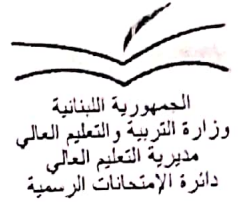 الجمهورية اللبنانية
وزارة التربية والتعليم العالي
مديرية التعليم العالي
دائرة الإمتحانات الرسمية